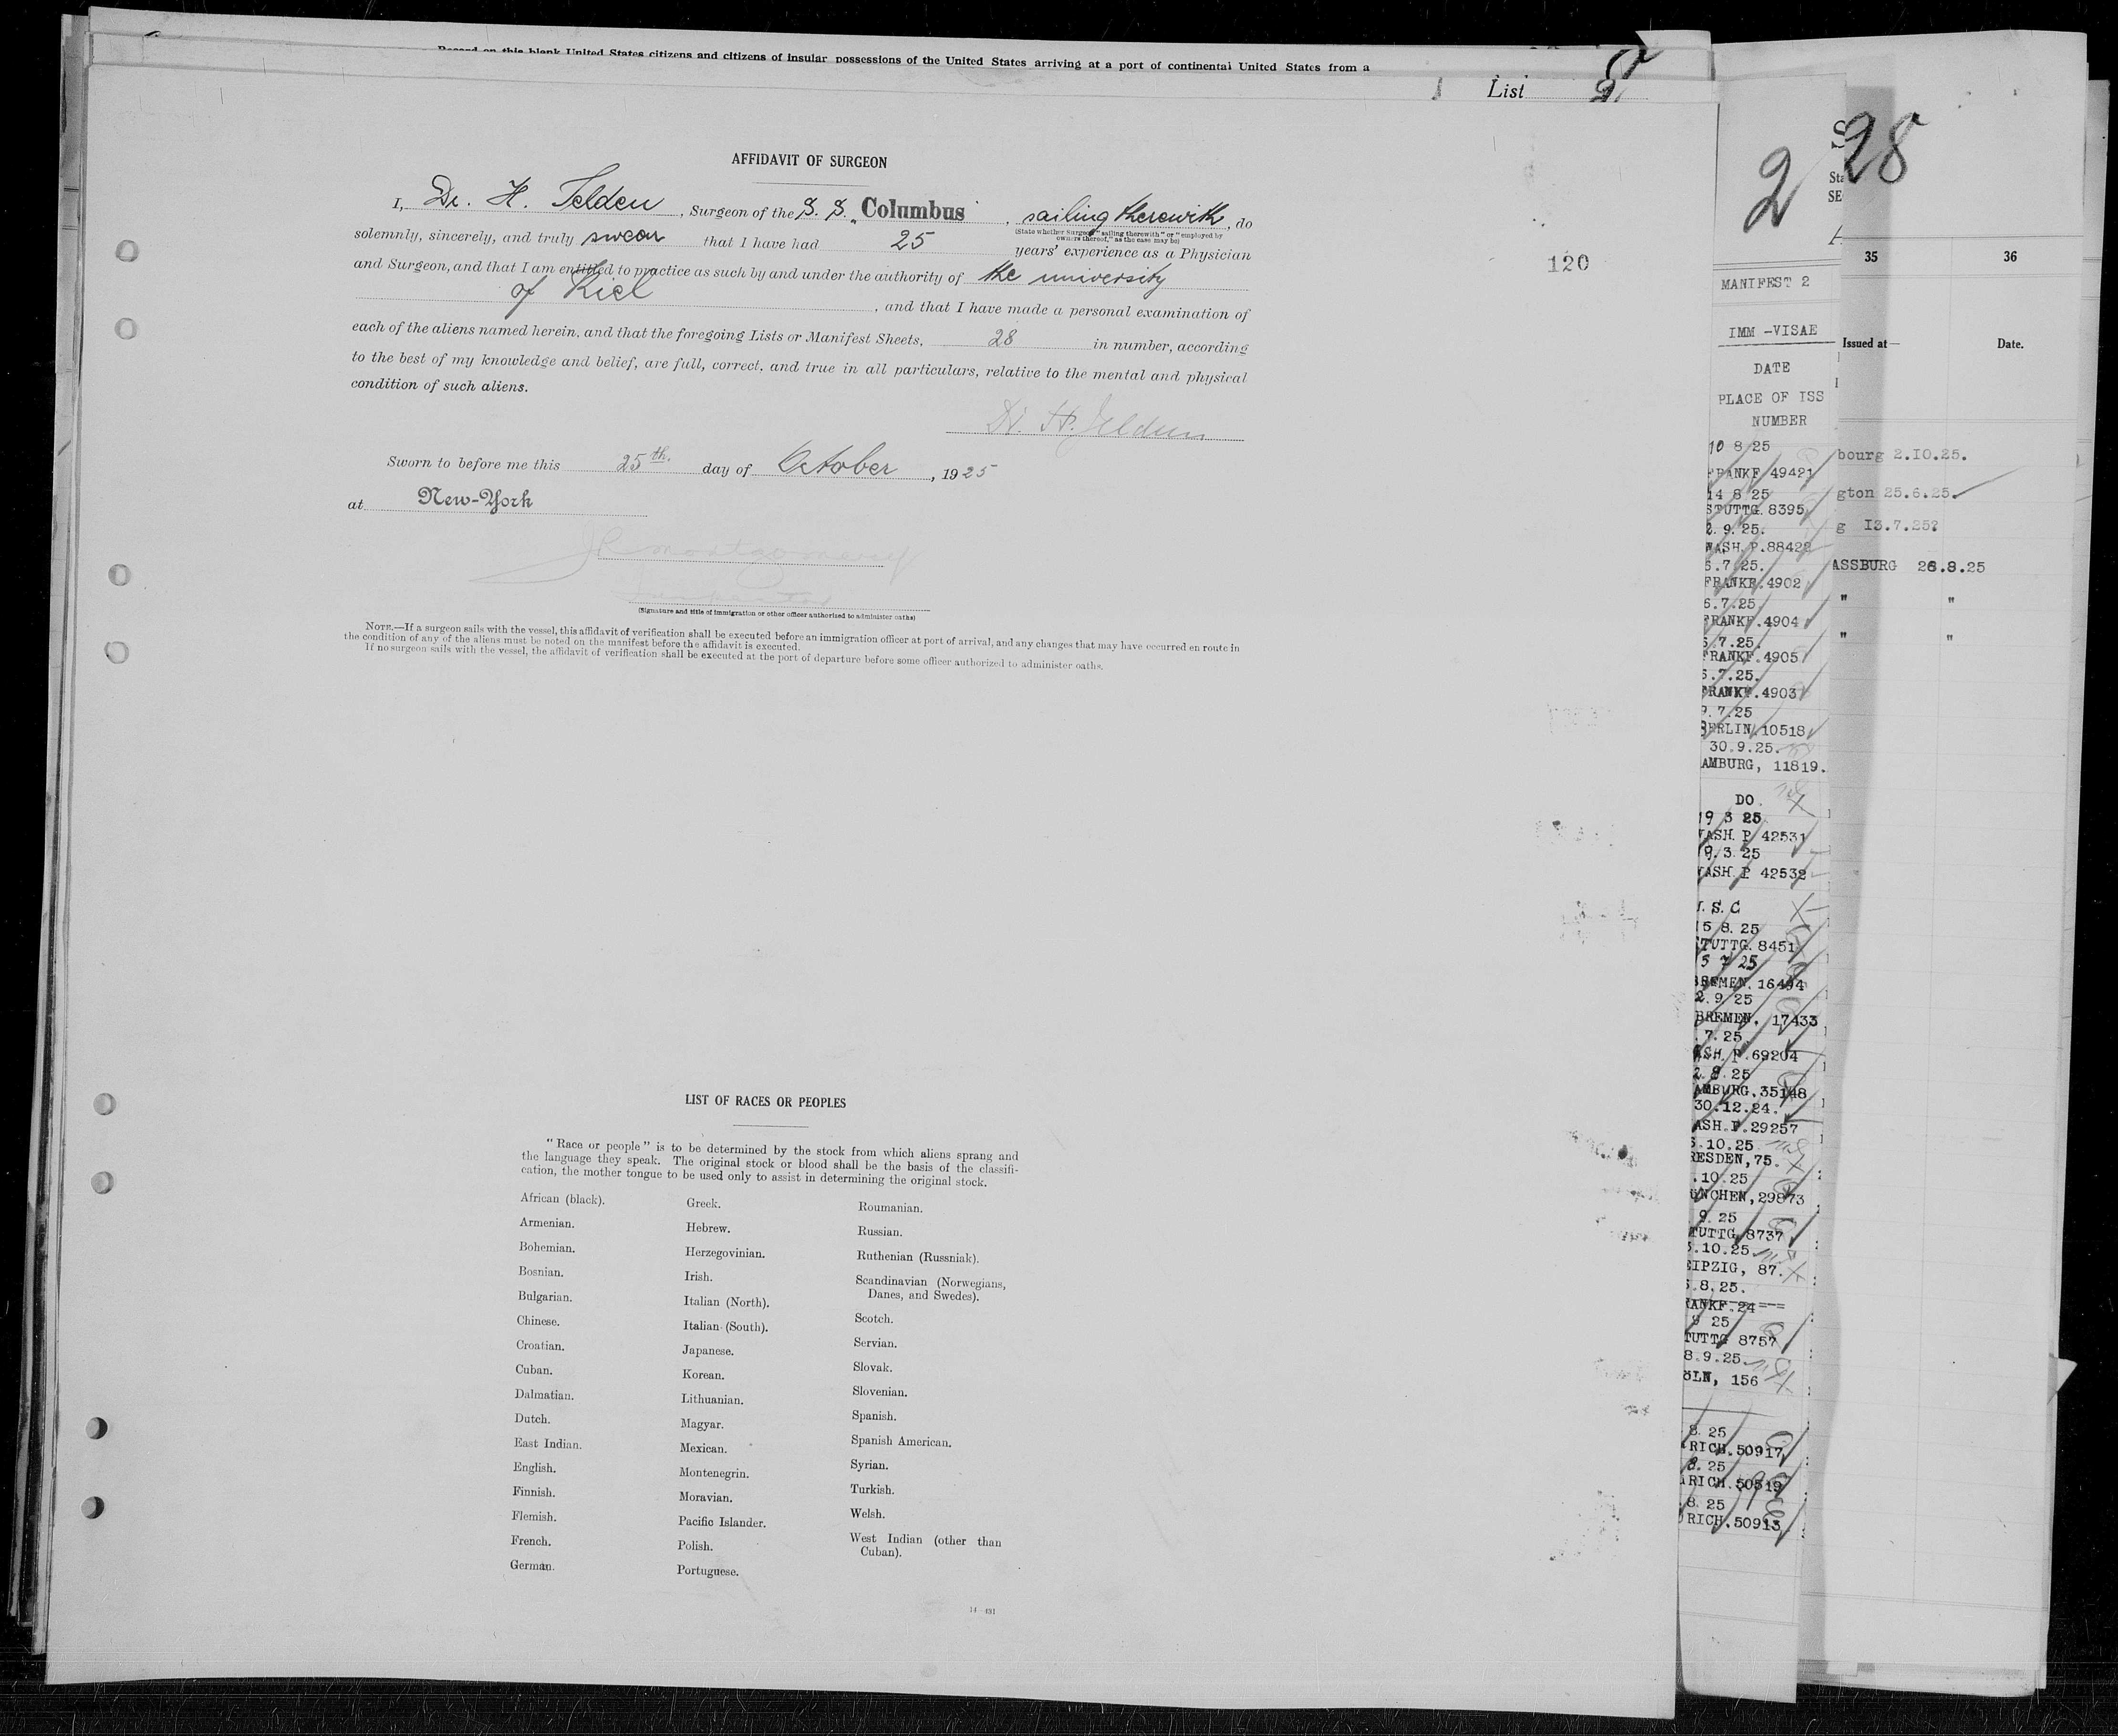 Record on this blank United States citizens and citizens of insular possessions of the United States arriving at a port of continental United States from a
List
AFFIDAVIT OF SURGEON
I, Dr. H. Jelden, Surgeon of the S. S. „Columbus", sailing therewith, do
(State whether Surgeon "sailing therewith" or "employed by
owners thereof," as the case may be)
solemnly, sincerely, and truly swear that I have had 25 years' experience as a Physician
and Surgeon, and that I am entitled to practice as such by and under the authority of the university
of Kiel, and that I have made a personal examination of
each of the aliens named herein, and that the foregoing Lists or Manifest Sheets, 28 in number, according
to the best of my knowledge and belief, are full, correct, and true in all particulars, relative to the mental and physical
condition of such aliens.
Dr. H. Jelden
Sworn to before me this 25th. day of October, 1925
at New-York
Montgomery
Inspector
(Signature and title of immigration or other officer authorized to administer oaths)
NOTE.—If a surgeon sails with the vessel, this affidavit of verification shall be executed before an immigration officer at port of arrival, and any changes that may have occurred en route in
the condition of any of the aliens must be noted on the manifest before the affidavit is executed.
If no surgeon sails with the vessel, the affidavit of verification shall be executed at the port of departure before some officer authorized to administer oaths.
120
LIST OF RACES OR PEOPLES
"Race or people" is to be determined by the stock from which aliens sprang and
the language they speak. The original stock or blood shall be the basis of the classifi-
cation, the mother tongue to be used only to assist in determining the original stock.
African (black).
Armenian.
Bohemian.
Bosnian.
Bulgarian.
Chinese.
Croatian.
Cuban.
Dalmatian.
Dutch.
East Indian.
English.
Finnish.
Flemish.
French.
German.
Greek.
Hebrew.
Herzegovinian.
Irish.
Italian (North).
Italian (South).
Japanese.
Korean.
Lithuanian.
Magyar.
Mexican.
Montenegrin.
Moravian.
Pacific Islander.
Polish.
Portuguese.
Roumanian.
Russian.
Ruthenian (Russniak).
Scandinavian (Norwegians,
Danes, and Swedes).
Scotch.
Servian.
Slovak.
Slovenian.
Spanish.
Spanish American.
Syrian.
Turkish.
Welsh.
West Indian (other than
Cuban).
2
MANIFEST 2
IMM -VISAE
DATE
PLACE OF ISS
NUMBER
10 8 25
FRANKF 49421
14 8 25
STUTTG. 8395
2.9.25.
WASH.P.88422
6.7.25.
FRANKF.4902
6.7.25.
FRANKF.4904
6.7.25.
FRANKF.4905
6.7.25.
FRANKF.4903
9.7.25
BERLIN.10518
30.9.25.
AMBURG, 11819.
DO.
19 3 25
WASH. P 42531
19.3.25
WASH. P 42532
U.S.C
15 8.25
STUTTG.8451
5 7 25
BREMEN.16494
2.9 25
BREMEN, 17433
.7.25
ASH. P.69204
2 8 25
AMBURG.35148
30.12.24.
ASH.P.29257
6.10.25
RESDEN,75.
.10.25
ÜNCHEN,29873
9.25
TUTTG.8737
3.10.25.
EIPZIG, 87.
6.8.25.
RANKF.24
9 25
TUTTG 8757
8.9.25.
ÖLN, 156
8.25
RICH.50917
8.25
RICH.50519
8.25
RICH.50913
28
35 36
Issued at— Date.
bourg 2.10.25.
gton 25.6.25.
g 13.7.25?
ASSBURG 26.8.25
" "
" "